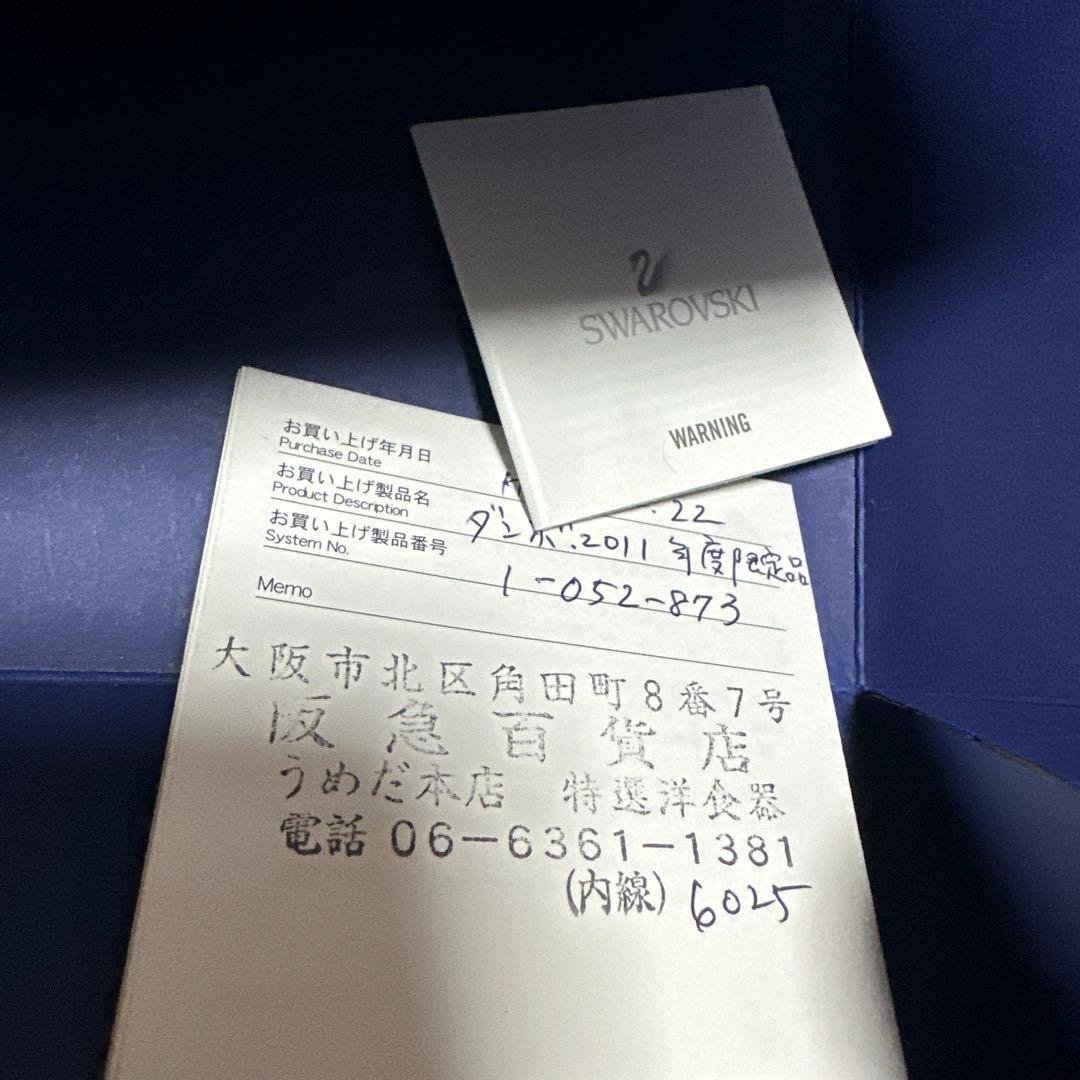 SWAROVSKI
WARNING
お買い上げ年月日
Purchase Date
.22
お買い上げ製品名
Product Description
ダンボ.2011年度限定品
お買い上げ製品番号
System No.
1-052-873
Memo
大阪市北区角田町8番7号
阪急百貨店
うめだ本店 特選洋食器
電話 06-6361-1381
(内線) 6025